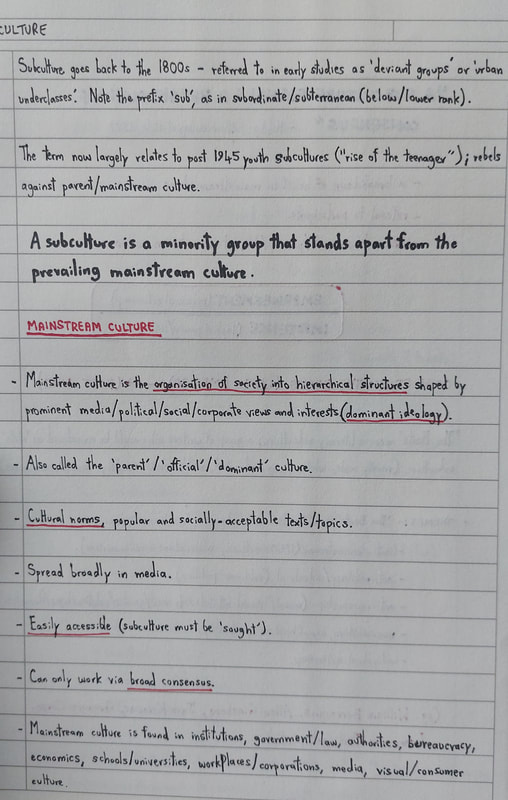 CULTURE
Subculture goes back to the 1800s – referred to in early studies as 'deviant groups' or 'urban
underclasses'. Note the prefix 'sub', as in subordinate/subterranean (below/lower rank).
The term now largely relates to post 1945 youth subcultures ("rise of the teenager"); rebels
against parent/mainstream culture.
A subculture is a minority group that stands apart from the
prevailing mainstream culture.
MAINSTREAM CULTURE
- Mainstream culture is the organisation of society into hierarchical structures shaped by
prominent media/political/social/corporate views and interests (dominant ideology).
- Also called the 'parent'/'official'/'dominant' culture.
- Cultural norms, popular and socially-acceptable texts/topics.
- Spread broadly in media.
- Easily accessible (subculture must be 'sought').
- Can only work via broad consensus.
- Mainstream culture is found in institutions, government/law, authorities, bureaucracy,
economics, schools/universities, workplaces/corporations, media, visual/consumer
culture.